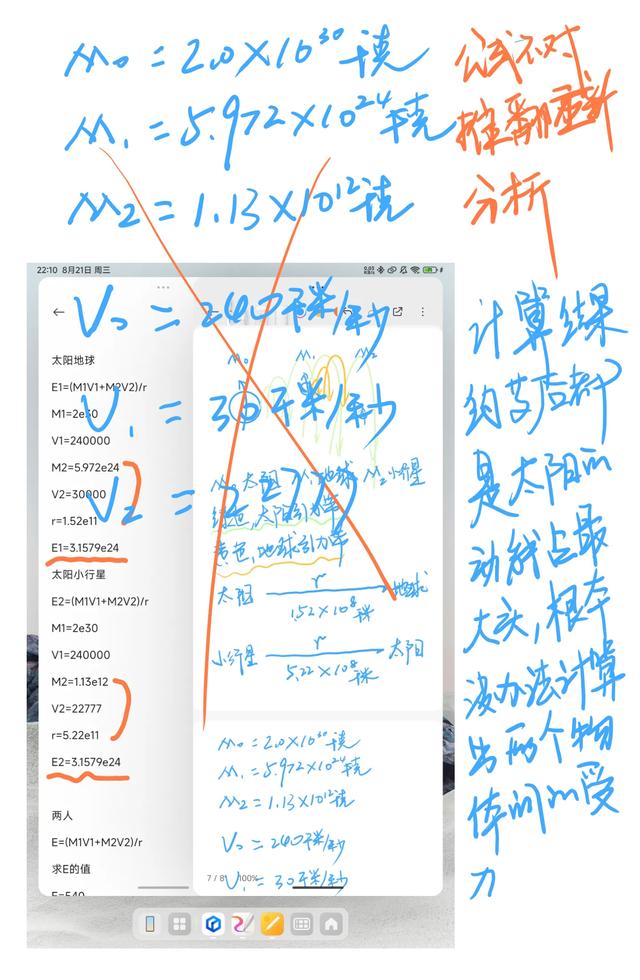 M₀=2.0×10³⁰千克
M₁=5.972×10²⁴千克
M₂=1.13×10¹²千克
V₀=240千米/秒
V₁=30千米/秒
V₂=22777
公式不对
推翻重新
分析
计算结果
约莫后都
是太阳的
动能占最
大头,根本
没办法计算
出两个物
体间的受
力
22:10 8月21日 周三
太阳地球
E1=(M1V1+M2V2)/r
M1=2e30
V1=240000
M2=5.972e24
V2=30000
r=1.52e11
E1=3.1579e24
太阳小行星
E2=(M1V1+M2V2)/r
M1=2e30
V1=240000
M2=1.13e12
V2=22777
r=5.22e11
E2=3.1579e24
两人
E=(M1V1+M2V2)/r
求E的值
E=540
M₀ M₁ M₂
M₀太阳 M₁地球 M₂小行星
太阳引力
黄色,地球引力
太阳 r 地球
1.52×10⁸千米
小行星 r 太阳
5.22×10⁸千米
M₀=2.0×10³⁰千克
M₁=5.972×10²⁴千克
M₂=1.13×10¹²千克
V₀=240千米/秒
7 / 8 100%
V₁=30千米/秒